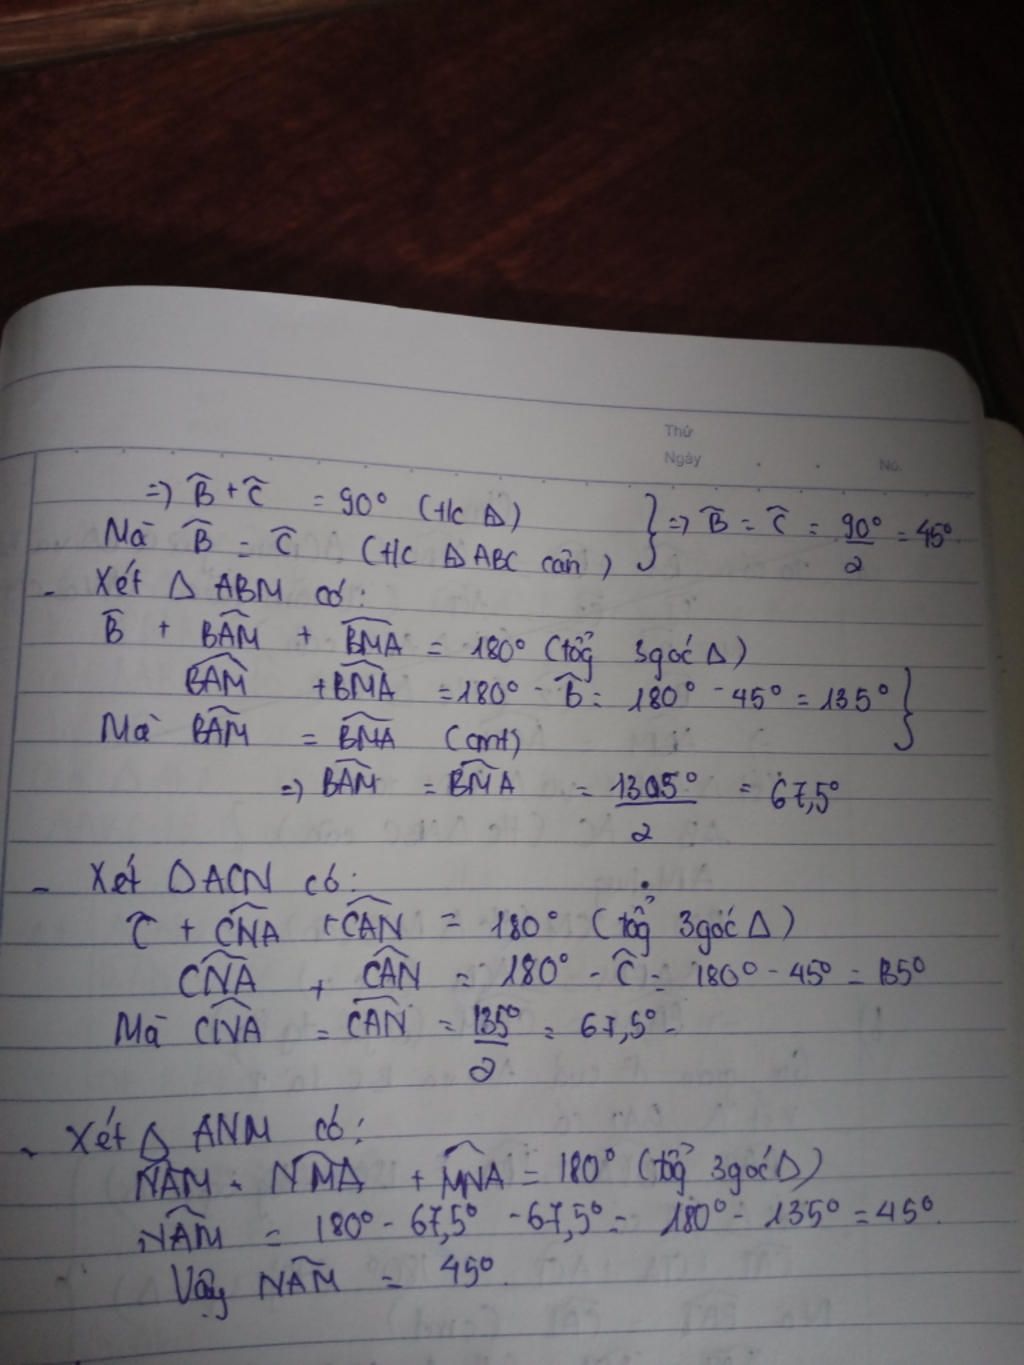 Thứ
Ngày
No.
=> B̂ + Ĉ = 90° (t/c Δ)
Mà B̂ = Ĉ (t/c ΔABC cân) } => B̂ = Ĉ = 90°/2 = 45°.
- Xét Δ ABM có:
B̂ + BÂM + BM̂A = 180° (tổg 3góc Δ)
BÂM + BM̂A = 180° - B̂ = 180° - 45° = 135° }
Mà BÂM = BM̂A (cmt)
=> BÂM = BM̂A = 135°/2 = 67,5°
- Xét ΔACN có:
Ĉ + CN̂A + CÂN = 180° (tổg 3góc Δ)
CN̂A + CÂN = 180° - Ĉ = 180° - 45° = 135°
Mà CN̂A = CÂN = 135°/2 = 67,5°.
- Xét Δ ANM có:
NÂM + NM̂A + MN̂A = 180° (tổg 3góc Δ)
NÂM = 180° - 67,5° - 67,5° = 180° - 135° = 45°.
Vậy NÂM = 45°.